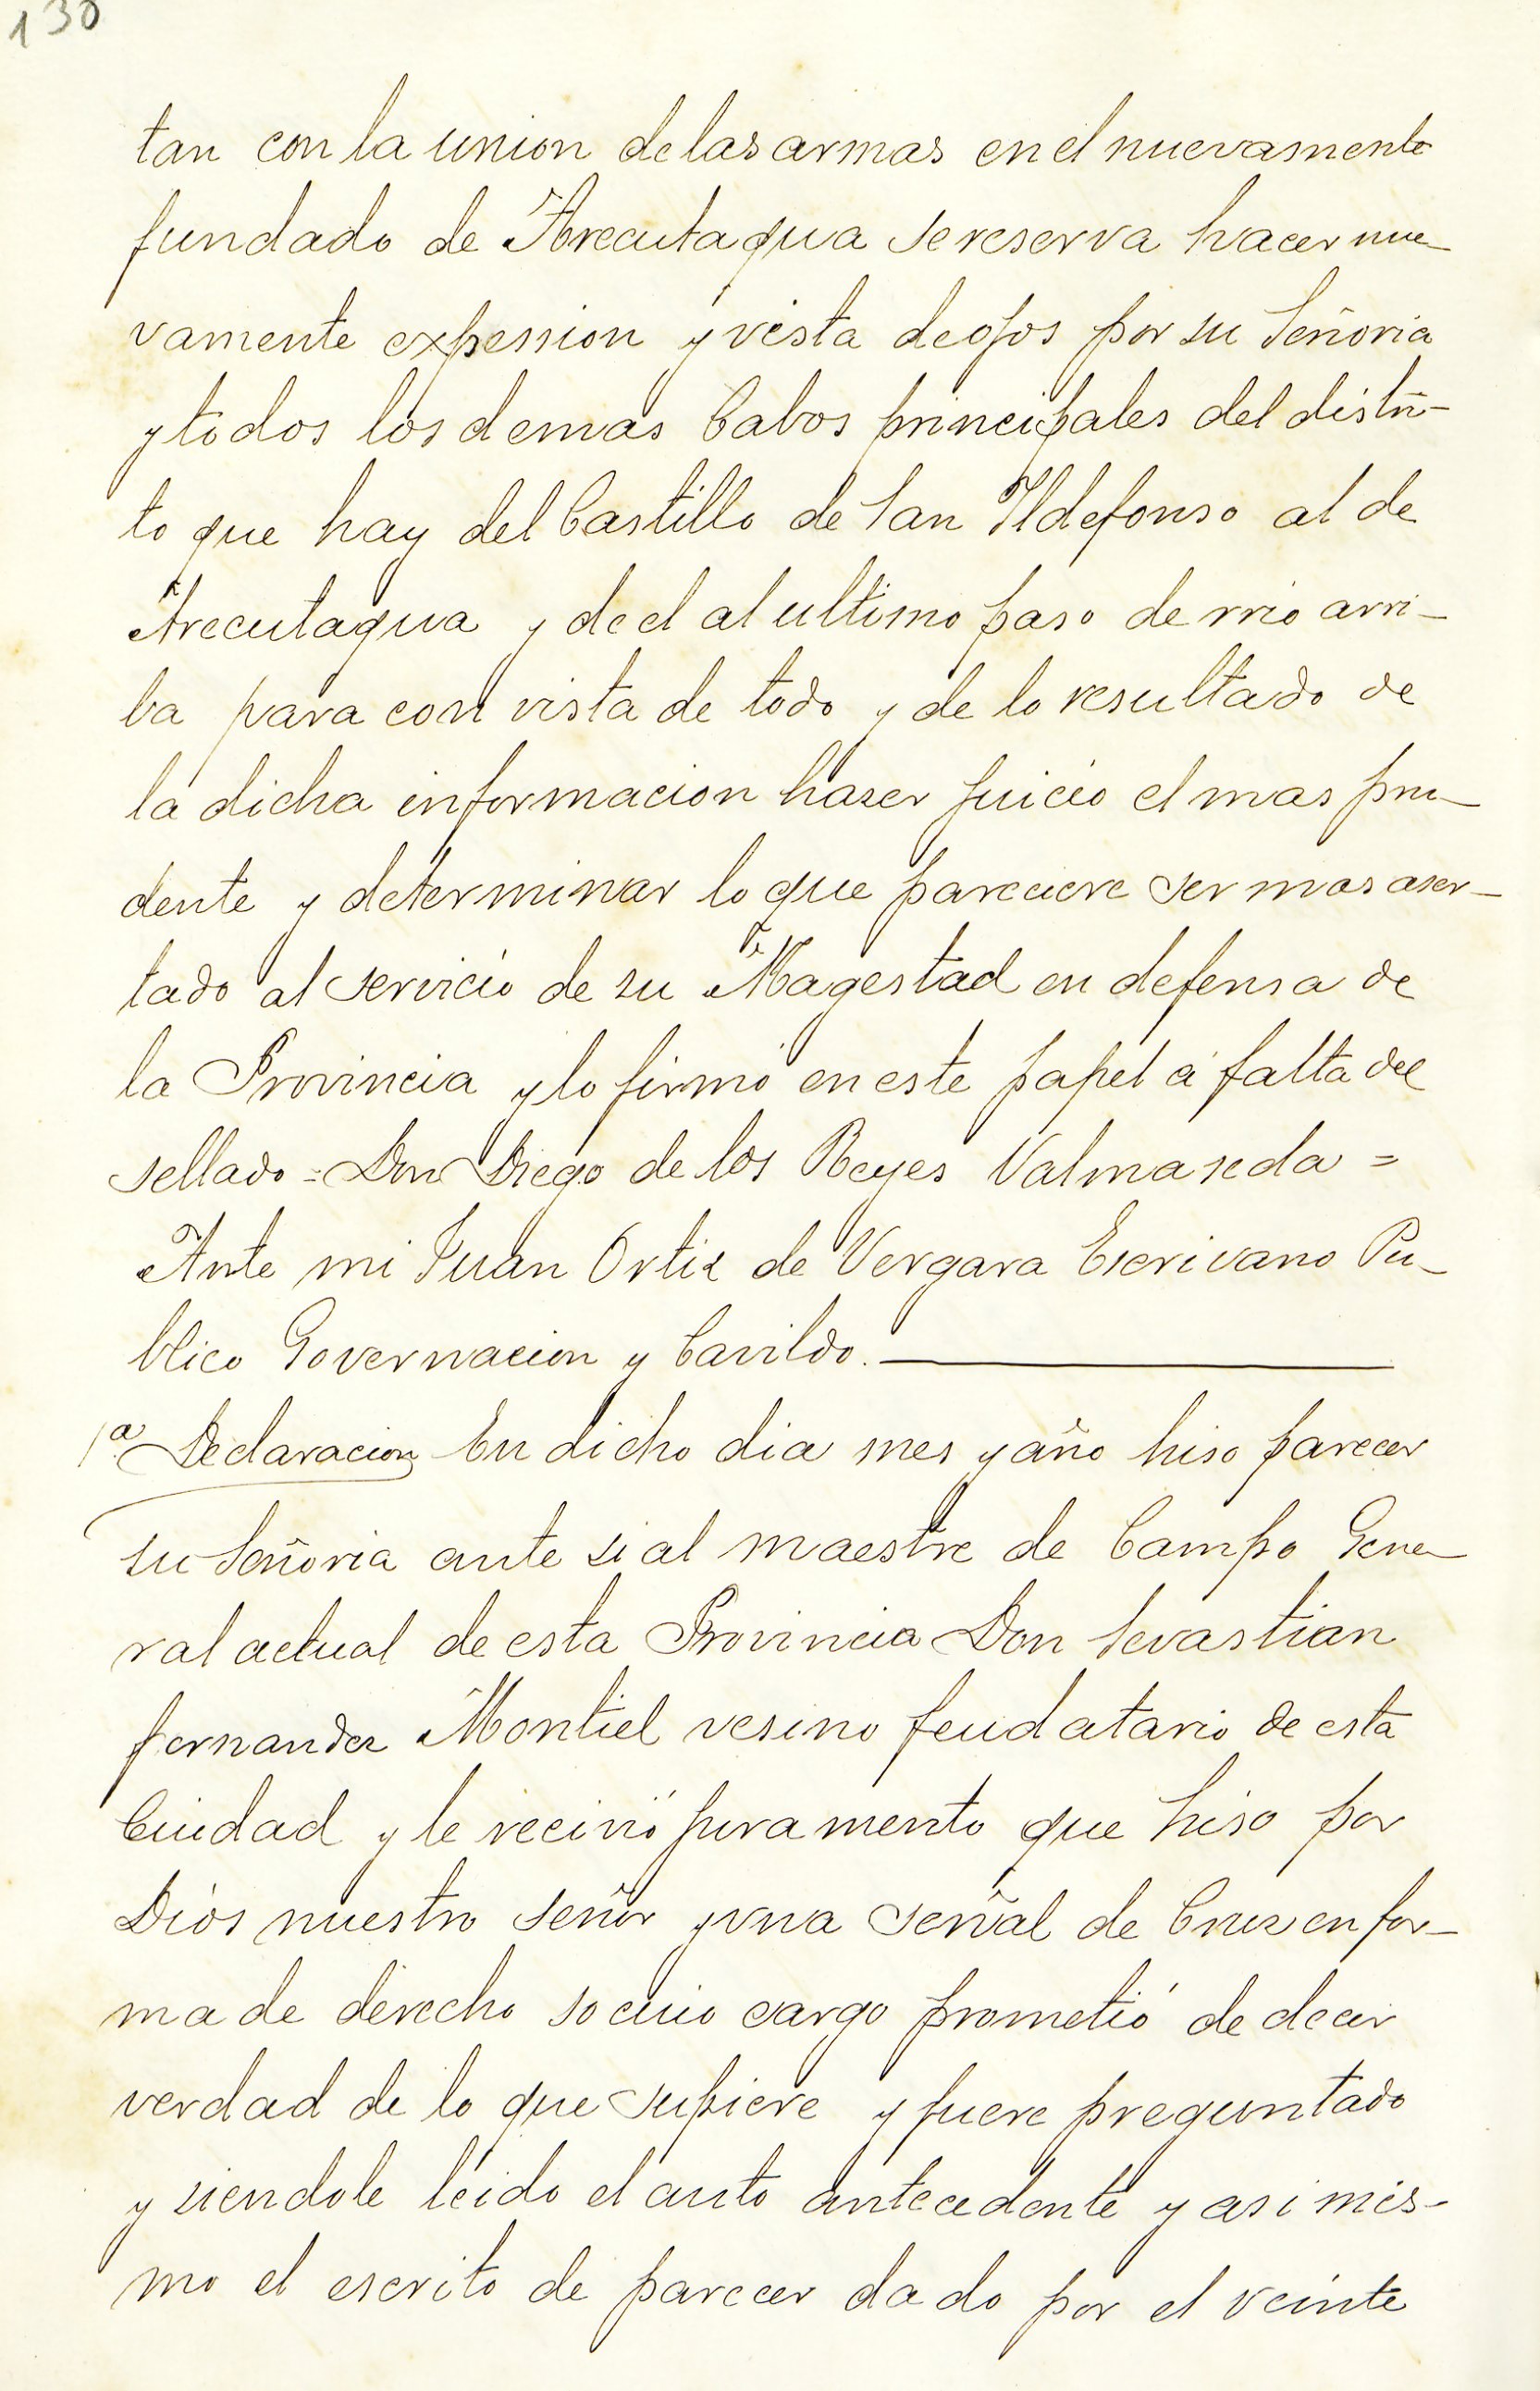 130
tan con la union de las armas en el nuevamente
fundado de Arecutaqua se reserva hacer nue-
vamente expession y vista de ojos por su Señoria
y todos los demas Cabos principales del distri-
to que hay del Castillo de San Ildefonso al de
Arecutaqua y de el al ultimo paso de rrio arri-
ba para con vista de todo y de lo resultado de
la dicha informacion haser juicio el mas pru-
dente y determinar lo que pareciere ser mas aser-
tado al servicio de su Magestad en defensa de
la Provincia y lo firmó en este papel á falta del
sellado = Don Diego de los Reyes Valmaseda =
Ante mi Juan Ortiz de Vergara Escrivano Pu-
blico Governacion y Cavildo.
1ª Declaracion En dicho dia mes y año hiso parecer
su Señoria ante si al maestre de Campo Gene-
ral actual de esta Provincia Don Sevastian
fernandez Montiel vesino feudatario de esta
Ciudad y le recivió juramento que hiso por
Dios nuestro señor y vna señal de Cruz en for-
ma de derecho so cuio cargo prometió de decir
verdad de lo que supiere y fuere preguntado
y siendole leido el auto antecedente y asi mis-
mo el escrito de parecer dado por el veinte